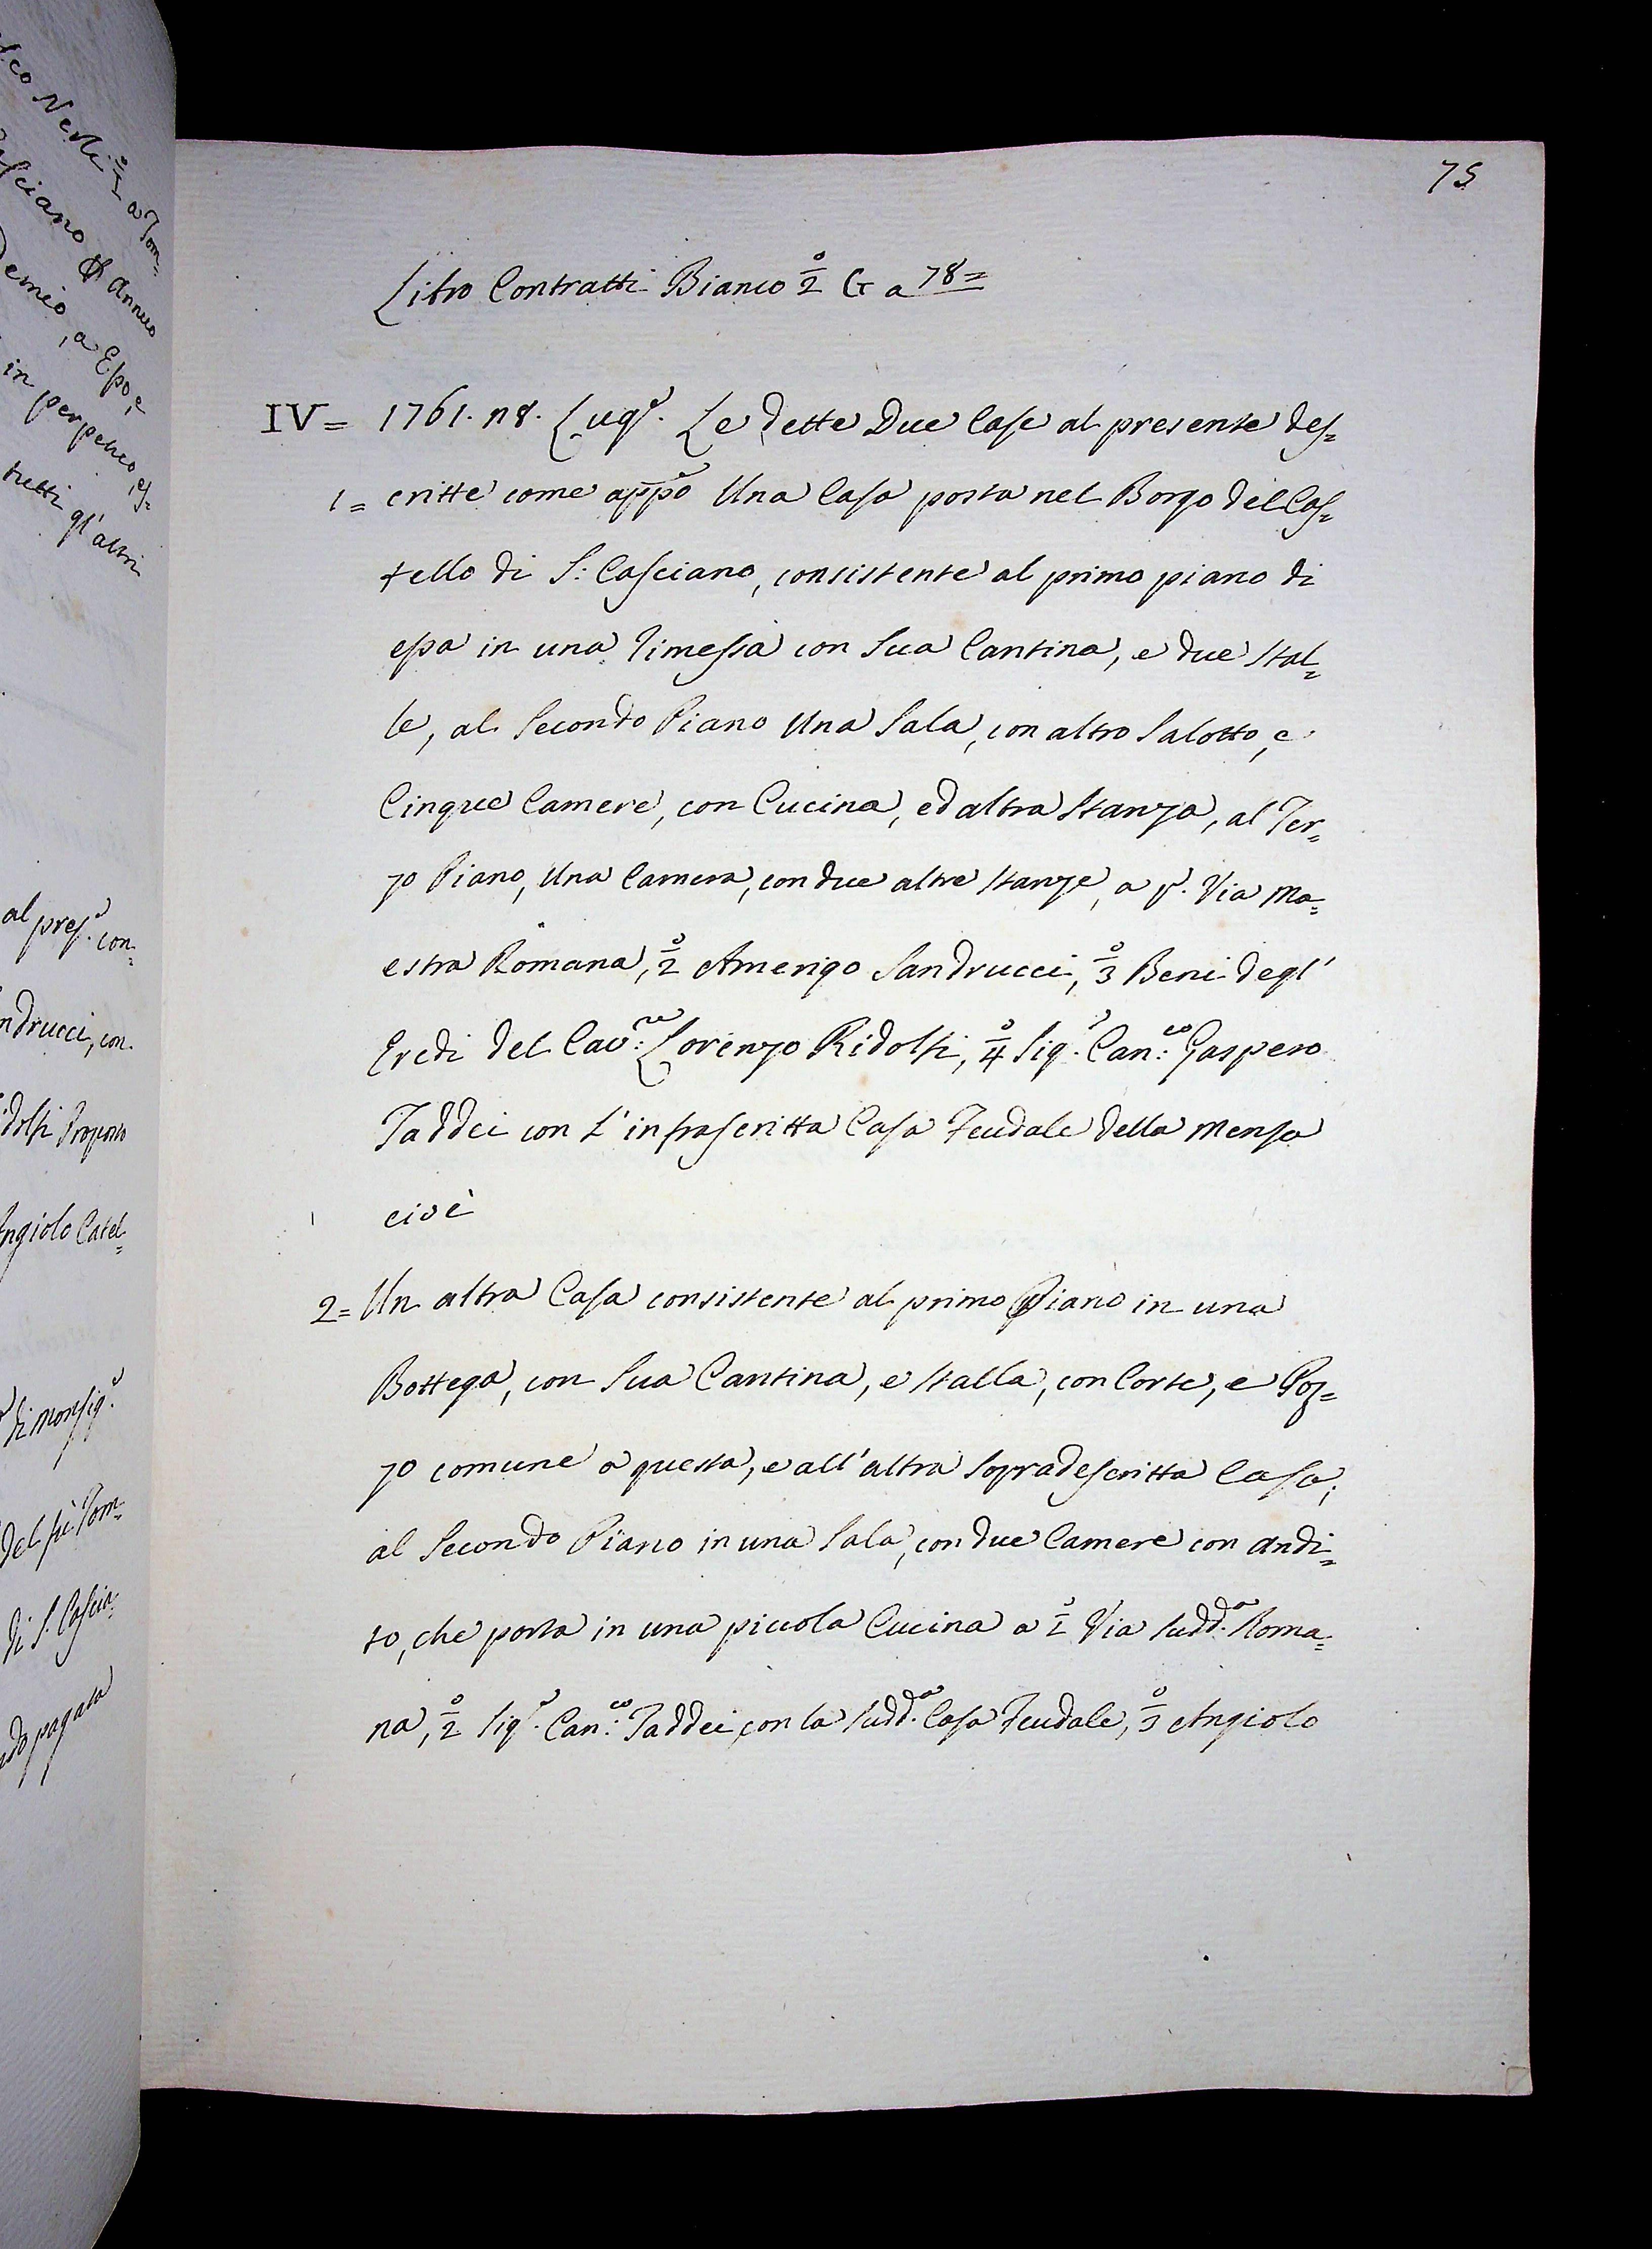 75
Libro Contratti Bianco 2º G a 78=
IV= 1761. 18. Lugº. Le dette Due Case al presente des=
1= critte come appº Una Casa posta nel Borgo del Cas=
tello di S: Casciano, consistente al primo piano di
essa in una rimessa con sua Cantina, e due stal=
le, al Secondo Piano Una Sala, con altro Salotto, e
Cinque Camere, con Cucina, ed altra stanza, al Ter=
zo Piano, Una Camera, con due altre stanze, a pº. Via Ma=
estra Romana, 2º Amerigo Sandrucci, 3º Beni degl'
Eredi del Cav:re Lorenzo Ridolfi, 4º Sigr. Can:co Gaspero
Taddei con l'infrascritta Casa Feudale della Mensa
cioè
2= Un altra Casa consistente al primo Piano in una
Bottega, con sua Cantina, e stalla, con Corte, e Poz=
zo comune a questa, e all'altra sopradescritta Casa;
al Secondo Piano in una Sala, con due Camere con andi=
to, che porta in una piccola Cucina a 1º Via sudd.a Roma=
na, 2º Sigr. Can:co Taddei con la sudd.a Casa Feudale, 3º Angiolo
al pres. con=
ndrucci, con
idolfi Proposto
Angiolo Catel=
di Monsigr.
del fù Tom=
di S. Cascia=
ndo pagata